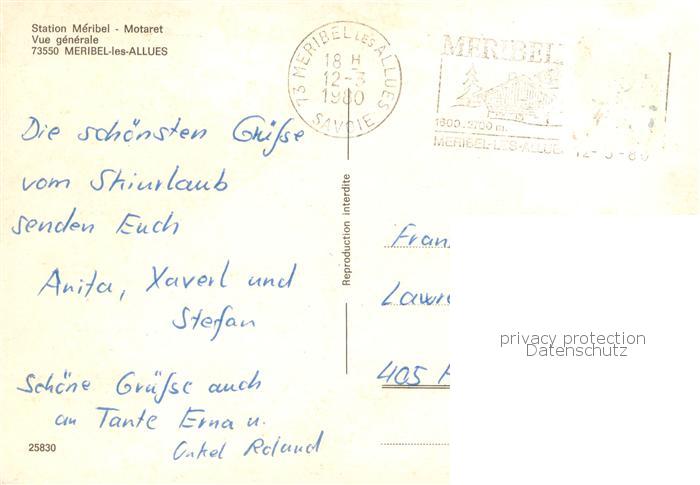 Station Méribel - Motaret
Vue générale
73550 MERIBEL-les-ALLUES
73 MERIBEL LES ALLUES
18 H
12-3
1980
SAVOIE
MERIBEL
1600-2700 m.
MERIBEL-LES-ALLUE
12-3-80
Die schönsten Grüße
vom Skiurlaub
senden Euch
Anita, Xaverl und
Stefan
Schöne Grüße auch
an Tante Erna u.
Onkel Roland
25830
Reproduction interdite
Fran
Lawr
405
privacy protection
Datenschutz